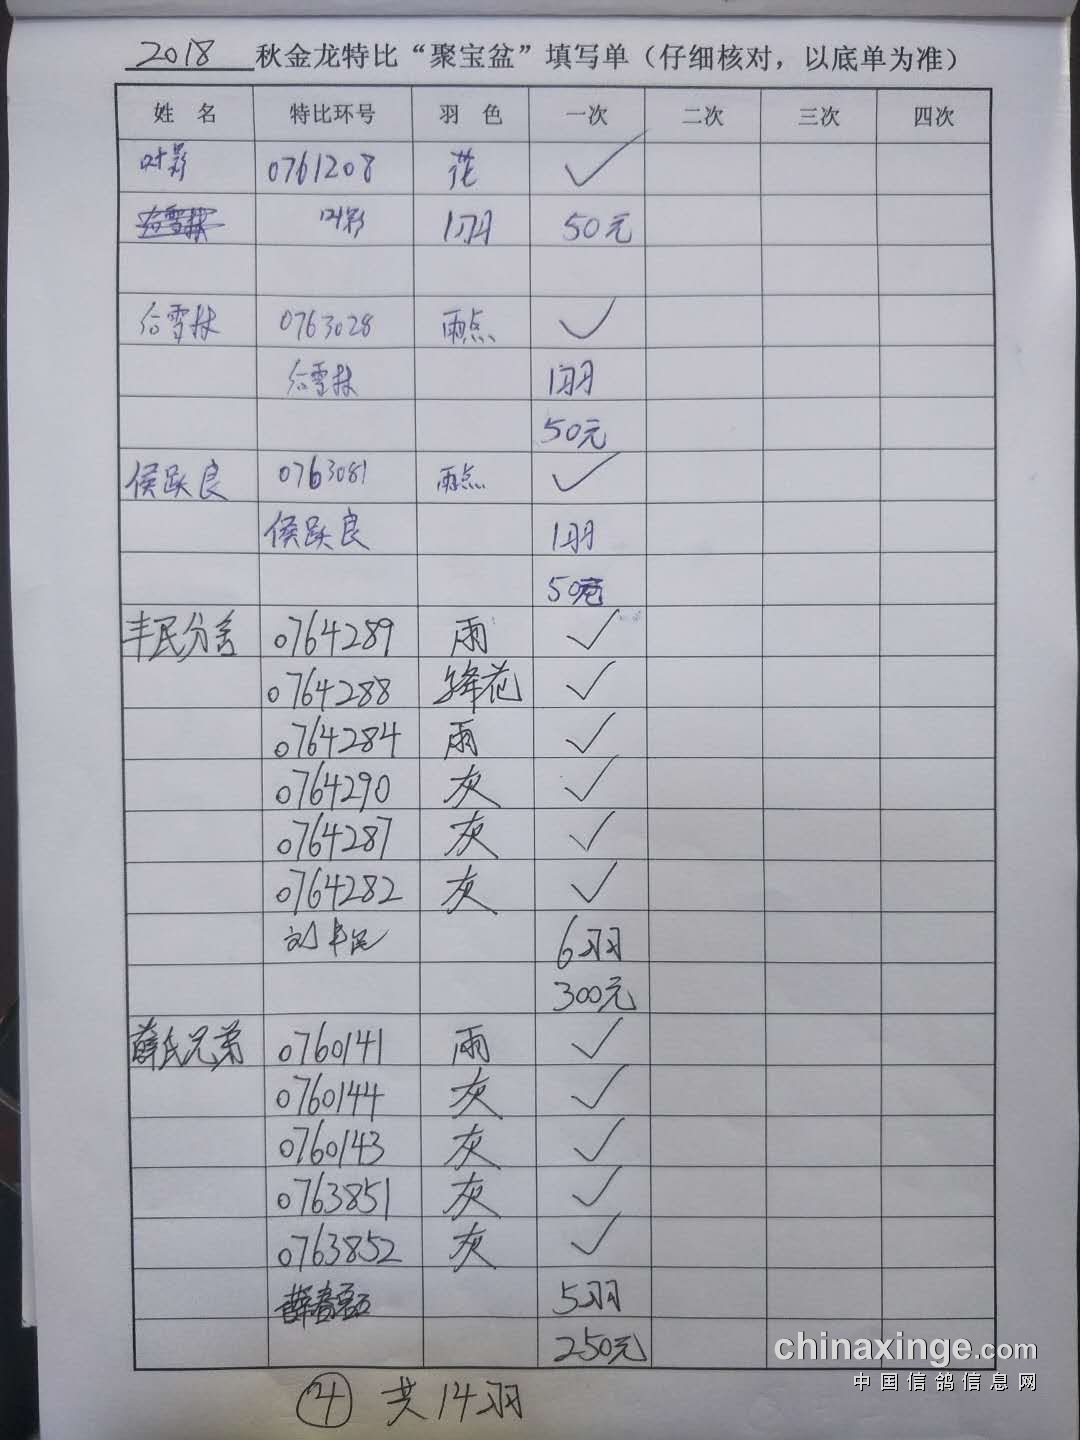 2018 秋金龙特比“聚宝盆”填写单（仔细核对，以底单为准）
姓 名 特比环号 羽 色 一次 二次 三次 四次
叶彩 0761208 花 ✓
叶彩 1羽 50元
台雪林 0763028 雨点 ✓
台雪林 1羽
50元
侯跃良 0763081 雨点 ✓
侯跃良 1羽
50元
丰民分舍 0764289 雨 ✓
0764288 绛花 ✓
0764284 雨 ✓
0764290 灰 ✓
0764287 灰 ✓
0764282 灰 ✓
刘丰民 6羽
300元
薛氏兄弟 0760141 雨 ✓
0760144 灰 ✓
0760143 灰 ✓
0763851 灰 ✓
0763852 灰 ✓
5羽
250元
④ 共14羽
chinaxinge.com
中国信鸽信息网